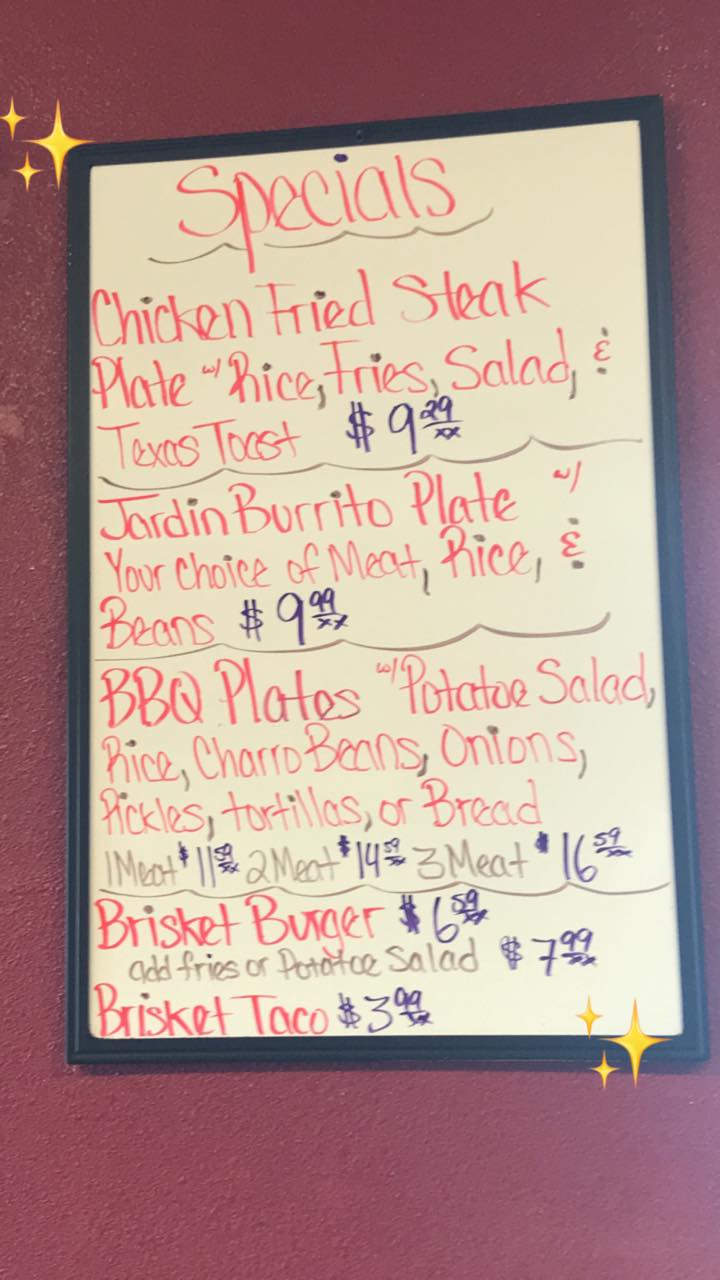 Specials
Chicken Fried Steak
Plate w/ Rice, Fries, Salad, &
Texas Toast $9 29/xx
Jardin Burrito Plate w/
Your choice of Meat, Rice, &
Beans $9 99/xx
BBQ Plates w/ Potatoe Salad,
Rice, Charro Beans, Onions,
Pickles, tortillas, or Bread
1 Meat $11 59/xx 2 Meat $14 59/xx 3 Meat $16 59/xx
Brisket Burger $6 59/xx
add fries or Potatoe Salad $7 99/xx
Brisket Taco $3 99/xx